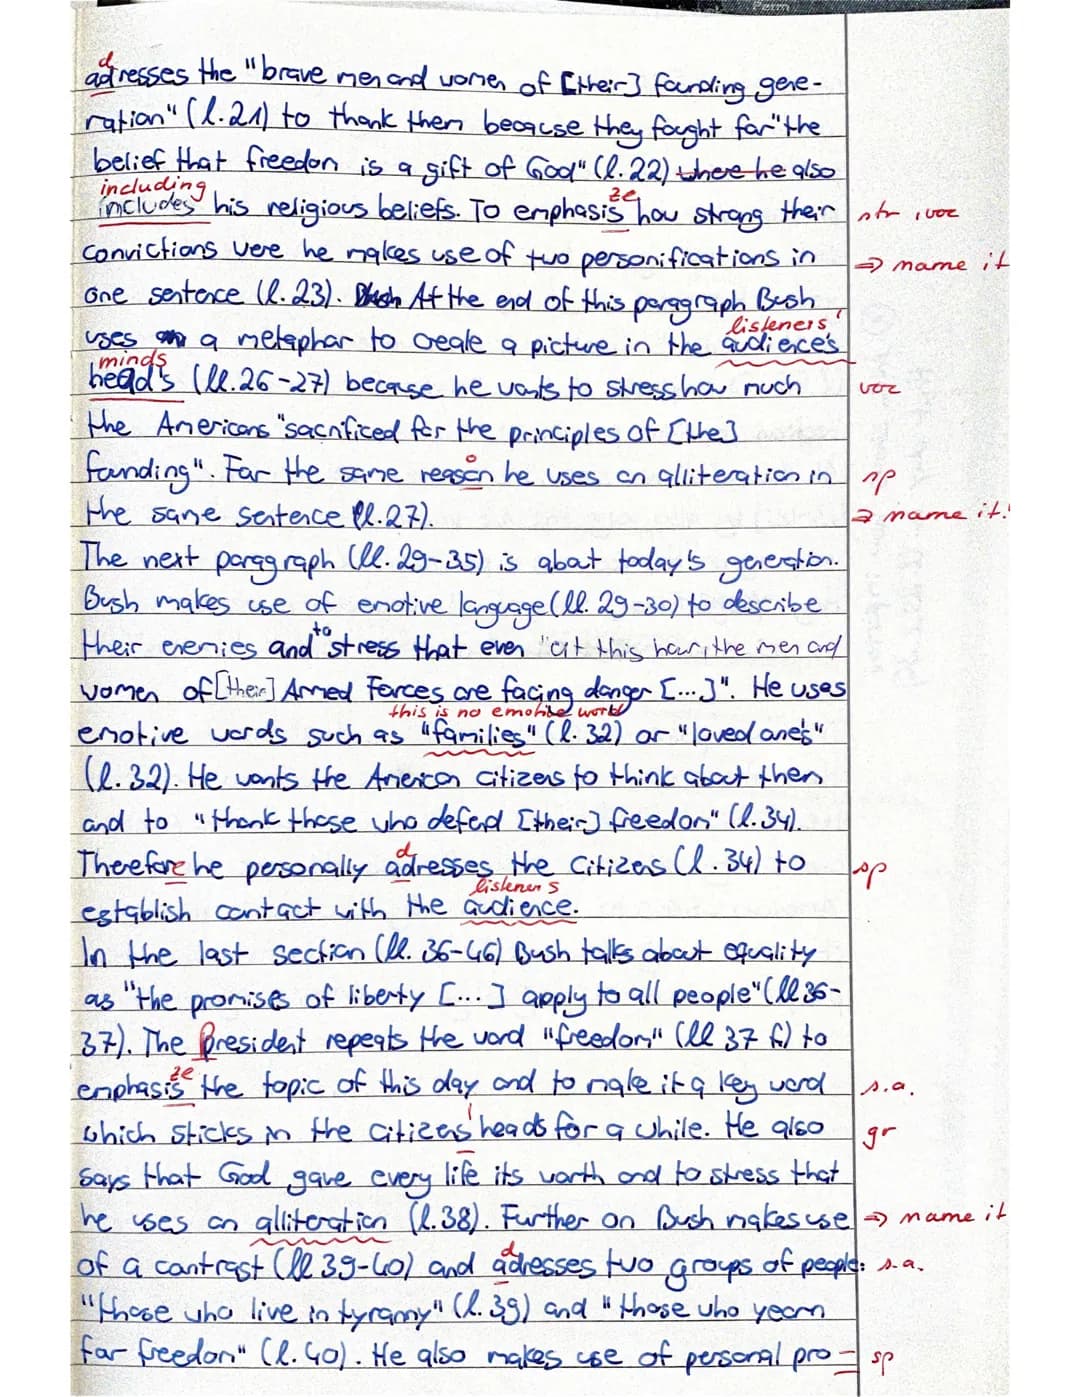 Perm
d
adresses the "brave men and women of [their] founding gene-
ration" (l.21) to thank them because they fought for "the
belief that freedom is a gift of God" (l.22) where he also
including
includes his religious beliefs. To emphasis how strong their
ze
str, voc
convictions were he makes use of two personifications in
=> name it
one sentence (l.23). At the end of this paragraph Bush
listeners'
uses a metaphor to create a picture in the audience's
minds
head's (ll.26-27) because he wants to stress how much
voc
the Americans "sacrificed for the principles of [the]
founding". For the same reason he uses an alliteration in
o
sp
the same sentence (l.27).
=> name it!
The next paragraph (ll. 29-35) is about today's generation.
Bush makes use of emotive language (ll. 29-30) to describe
to
their enemies and stress that even "at this hour, the men and
women of [their] Armed Forces are facing danger [...]". He uses
this is no emotive word
emotive words such as "families" (l. 32) or "loved one's"
(l. 32). He wants the American citizens to think about them
and to "thank those who defend [their] freedom" (l.34).
d
Therefore he personally adresses the citizens (l. 34) to
sp
listeners
establish contact with the audience.
In the last section (ll. 36-46) Bush talks about equality
as "the promises of liberty [...] apply to all people" (ll 36-
37). The President repeats the word "freedom" (ll 37 f.) to
ze
emphasis the topic of this day and to make it a key word
s.a.
which sticks in the citizens' heads for a while. He also
gr
says that God gave every life its worth and to stress that
he uses an alliteration (l.38). Further on Bush makes use
=> name it
d
of a contrast (ll 39-40) and adresses two groups of people:
s.a.
"those who live in tyranny" (l. 39) and "those who yearn
for freedom" (l. 40). He also makes use of personal pro-
sp